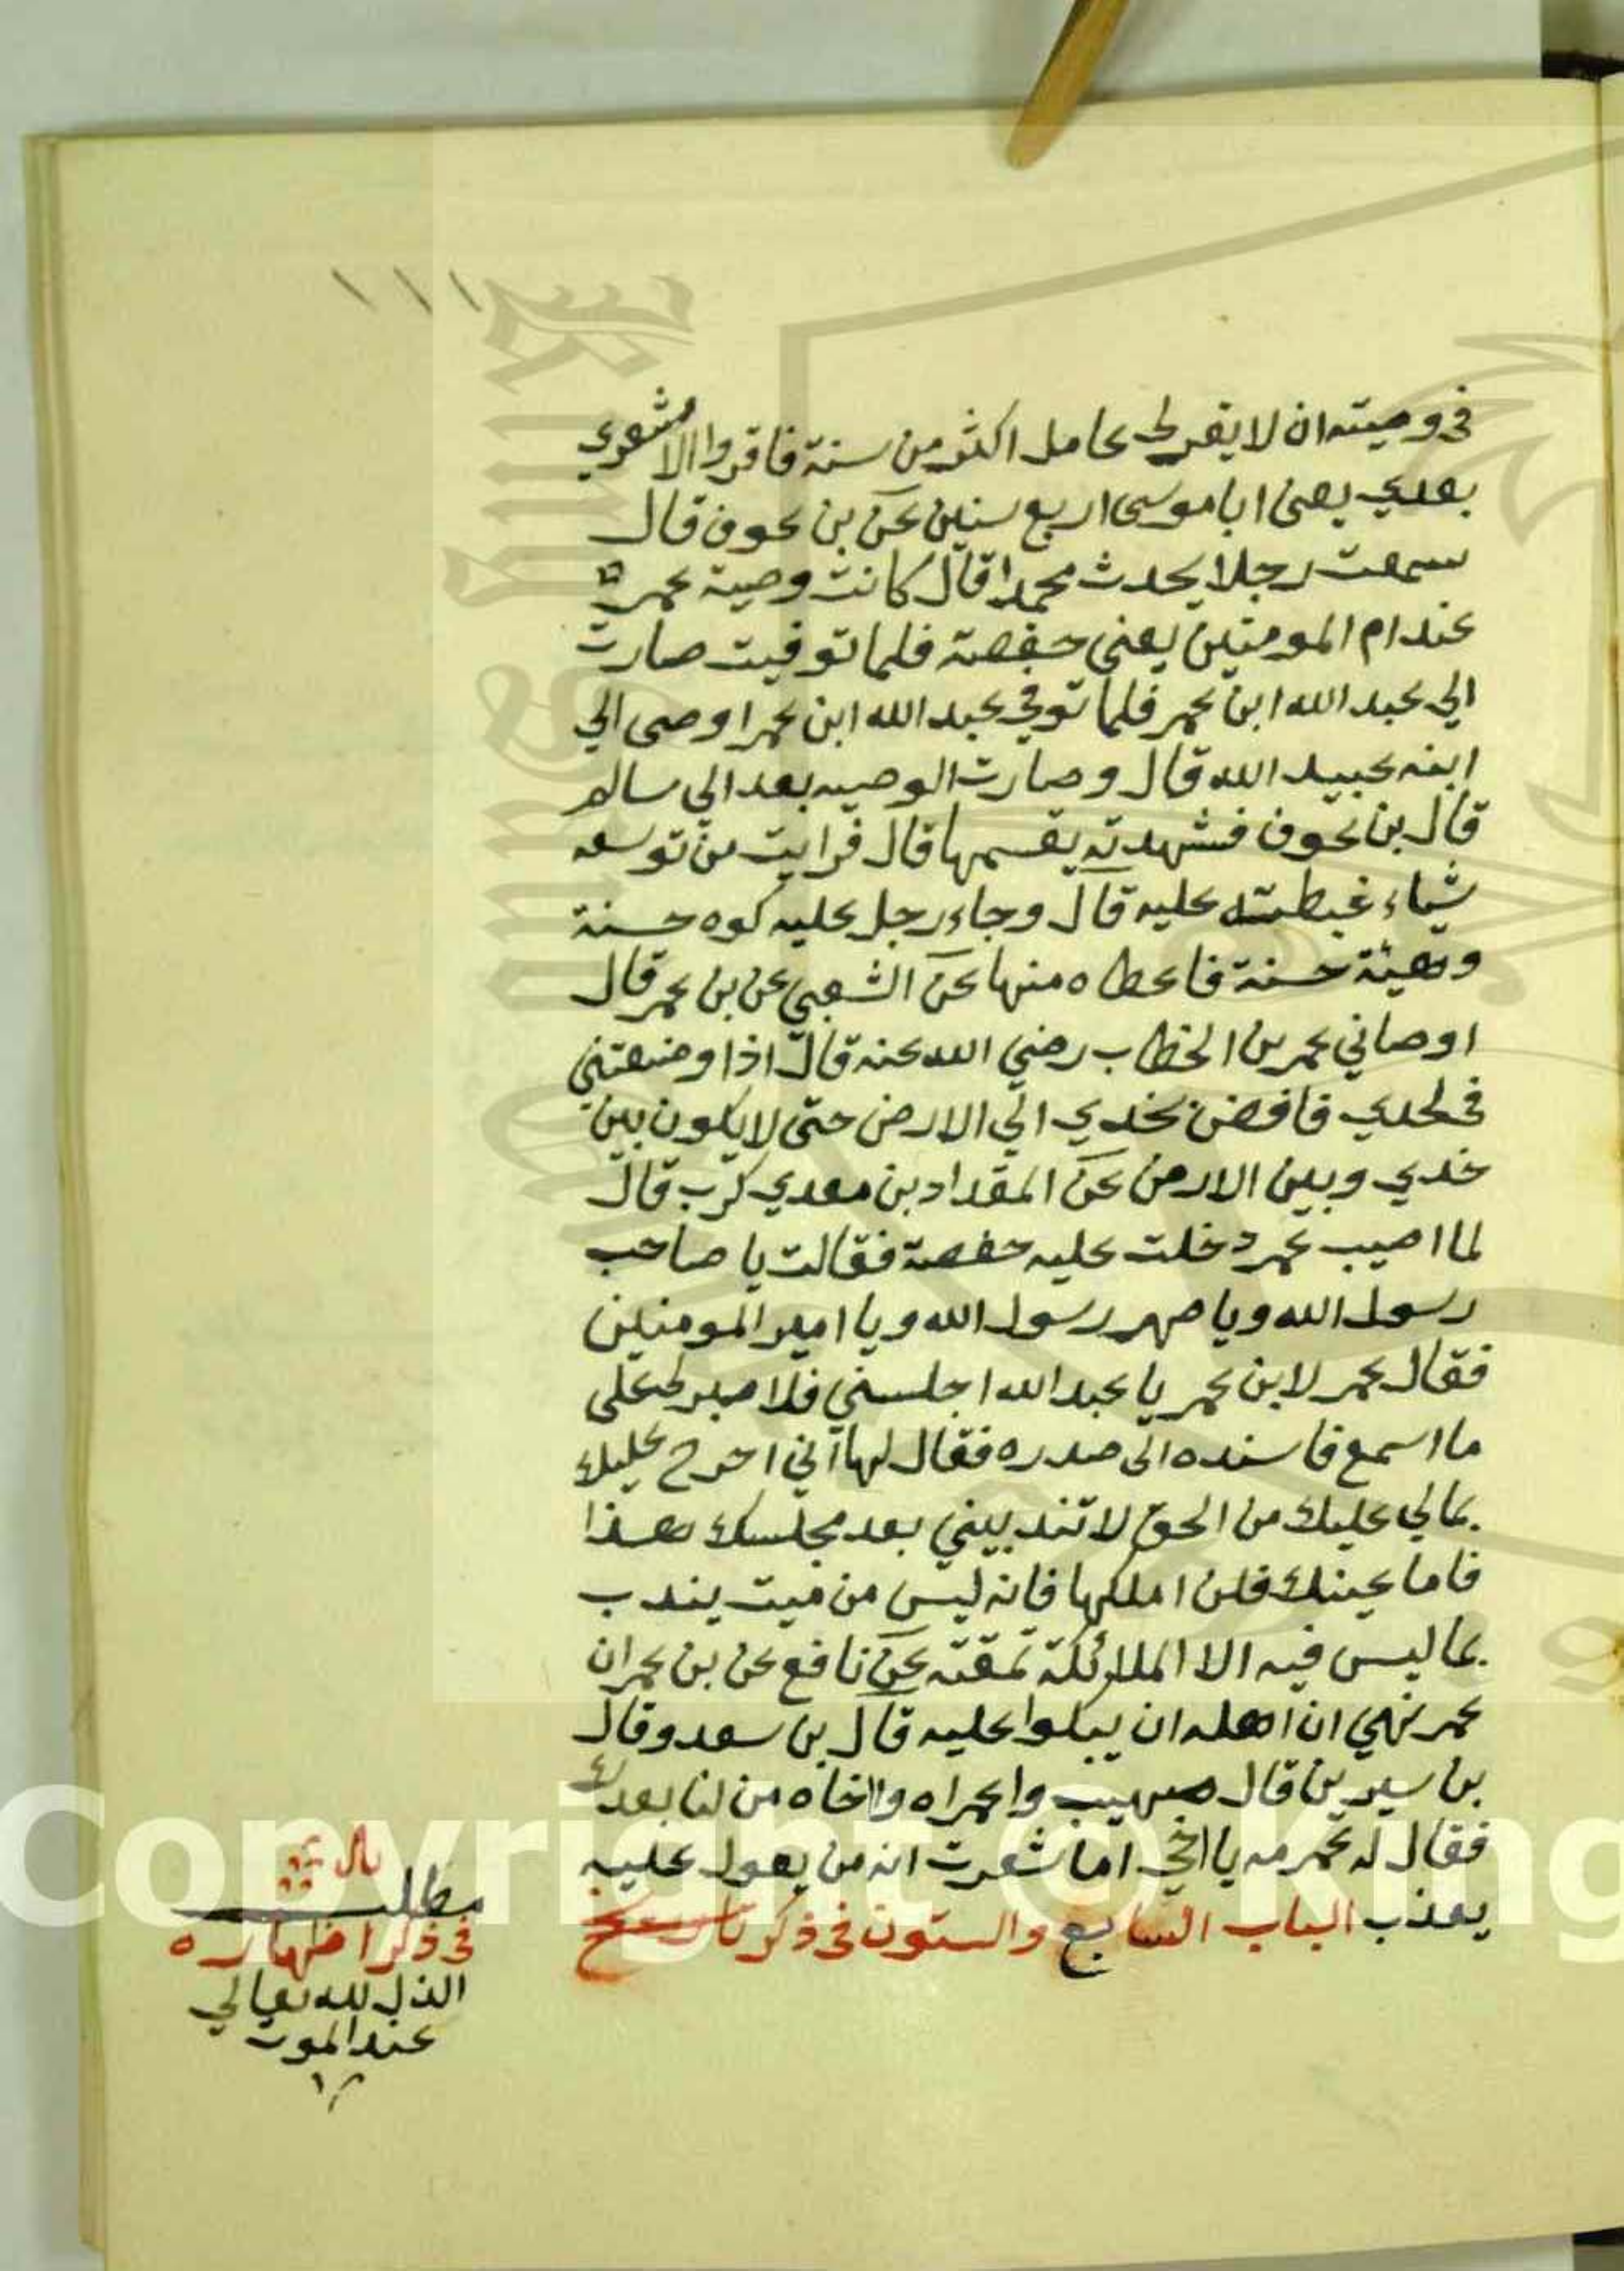 ١١١
في وصيته ان لا يقر لى عامل اكثر من سنة فاقروا الاشعري
بعدي يعنى ابا موسى اربع سنين عن بن عوف قال
سمعت رجلا يحدث محمدا قال كانت وصية عمر
عند ام المومنين يعني حفصة فلما توفيت صارت
الي عبد الله ابن عمر فلما توفي عبد الله ابن عمر اوصى الي
ابنه عبيد الله قال وصارت الوصيه بعد الي سالم
قال بن عوف فشهدته يقسمها قال فرايت من توسعه
شياء غبطته عليه قال وجاء رجل عليه كوه حسنة
وهيئة حسنة فاعطاه منها عن الشعبي عن بن عمر قال
اوصاني عمر بن الخطاب رضي الله عنه قال اذا وضعتني
في لحدي فافض بخدي الي الارض حتى لا يكون بين
خدي وبين الارض عن المقداد بن معدي كرب قال
لما اصيب عمر دخلت عليه حفصة فقالت يا صاحب
رسول الله ويا صهر رسول الله ويا امير المومنين
فقال عمر لابن عمر يا عبد الله اجلسني فلا صبر لي على
ما اسمع فاسنده الى صدره فقال لها اني احرج عليك
بمالي عليك من الحق لا تندبيني بعد مجلسك هذا
فاما عينك فلن املكها فانه ليس من ميت يندب
بما ليس فيه الا الملائكة تمقته عن نافع عن بن عمر ان
عمر نهي ان اهله ان يبكوا عليه قال بن سعد وقال
بن سيرين قال صهيب واعمراه وااخاه من لنا بعدك
فقال له عمر مه يا اخي اما شعرت انه من يعول عليه
يعذب الباب السابع والستون في ذكر تاريخ
مطلب
في ذكر اظهاره
الذل لله تعالي
عند الموت